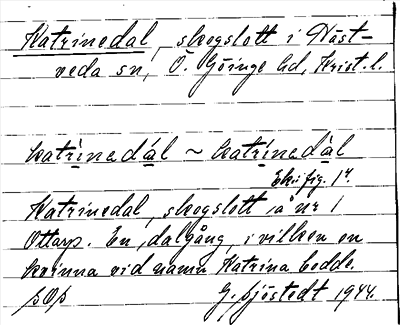 Katrinedal, skogslott i Näst-
veda sn, Ö. Göinge hd, Krist. l.
katrinedál ~ katrinedàl
Ek: fig. 1⁴.
Katrinedal, skogslott å nr 1
Ottarp. En dalgång, i vilken en
kvinna vid namn Katrina bodde.
G. Sjöstedt 1944.